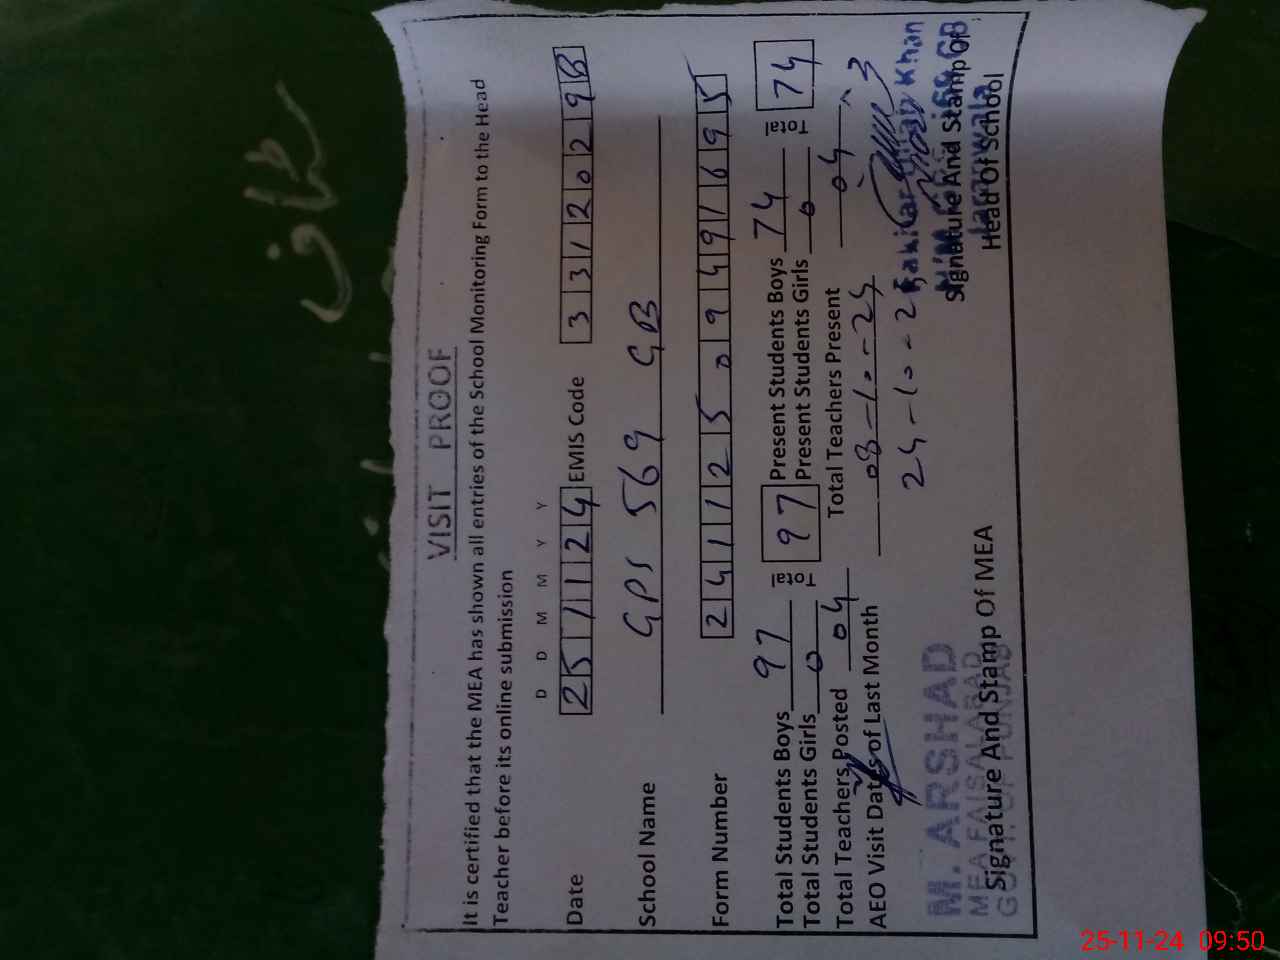 VISIT PROOF
It is certified that the MEA has shown all entries of the School Monitoring Form to the Head
Teacher before its online submission
D D M M Y Y
Date 251124 EMIS Code 33120298
School Name GPS 569 GB
Form Number 241125 0949 1695
Total Students Boys 97 Total 97 Present Students Boys 74 Total 74
Total Students Girls 0 Present Students Girls 0
Total Teachers Posted 04 Total Teachers Present 04
AEO Visit Dates of Last Month 08-10-24
24-10-24
M. ARSHAD
MEA FAISALABAD
GOVT. OF PUNJAB
Signature And Stamp Of MEA
Khan
569 GB
Jaranwala
Signature And Stamp Of
Head Of School
25-11-24 09:50